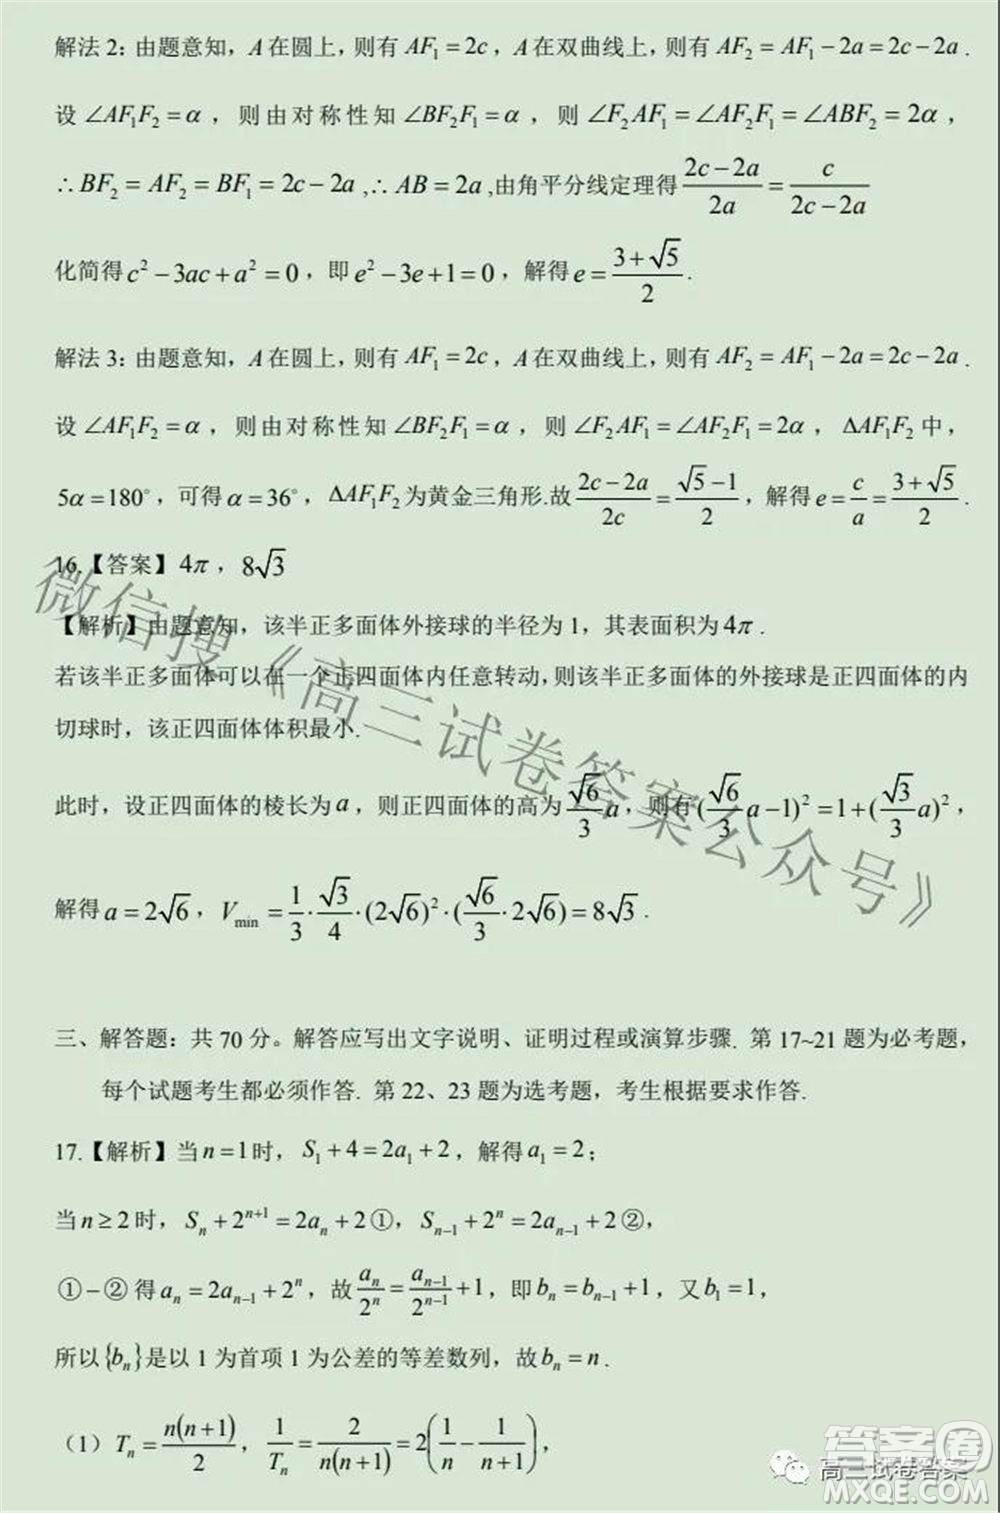 解法 2：由题意知，A 在圆上，则有 AF₁=2c，A 在双曲线上，则有 AF₂=AF₁−2a=2c−2a.
设 ∠AF₁F₂=α，则由对称性知 ∠BF₂F₁=α，则 ∠F₂AF₁=∠AF₂F₁=∠ABF₂=2α，
∴BF₂=AF₂=BF₁=2c−2a,∴AB=2a,由角平分线定理得 (2c−2a)/(2a)=c/(2c−2a)
化简得 c²−3ac+a²=0，即 e²−3e+1=0，解得 e=(3+√5)/2.
解法 3：由题意知，A 在圆上，则有 AF₁=2c，A 在双曲线上，则有 AF₂=AF₁−2a=2c−2a.
设 ∠AF₁F₂=α，则由对称性知 ∠BF₂F₁=α，则 ∠F₂AF₁=∠AF₂F₁=2α，ΔAF₁F₂ 中，
5α=180°，可得 α=36°，ΔAF₁F₂ 为黄金三角形.故 (2c−2a)/(2c)=(√5−1)/2，解得 e=c/a=(3+√5)/2.
16.【答案】4π，8√3
【解析】由题意知，该半正多面体外接球的半径为 1，其表面积为 4π.
若该半正多面体可以在一个正四面体内任意转动,则该半正多面体的外接球是正四面体的内
切球时，该正四面体体积最小.
此时，设正四面体的棱长为 a，则正四面体的高为 (√6/3)a，则有 ((√6/3)a−1)²=1+((√3/3)a)²，
解得 a=2√6，Vmin=1/3·√3/4·(2√6)²·(√6/3·2√6)=8√3.
三、解答题：共 70 分。解答应写出文字说明、证明过程或演算步骤. 第 17~21 题为必考题，
每个试题考生都必须作答. 第 22、23 题为选考题，考生根据要求作答.
17.【解析】当 n=1 时，S₁+4=2a₁+2，解得 a₁=2；
当 n≥2 时，Sₙ+2ⁿ⁺¹=2aₙ+2①，Sₙ₋₁+2ⁿ=2aₙ₋₁+2②，
①−②得 aₙ=2aₙ₋₁+2ⁿ，故 aₙ/2ⁿ=aₙ₋₁/2ⁿ⁻¹+1，即 bₙ=bₙ₋₁+1，又 b₁=1，
所以{bₙ}是以 1 为首项 1 为公差的等差数列，故 bₙ=n.
（1）Tₙ=n(n+1)/2，1/Tₙ=2/(n(n+1))=2(1/n−1/(n+1))，
微信搜《高三试卷答案公众号》
高三试卷答案
答案圈
MXQE.COM